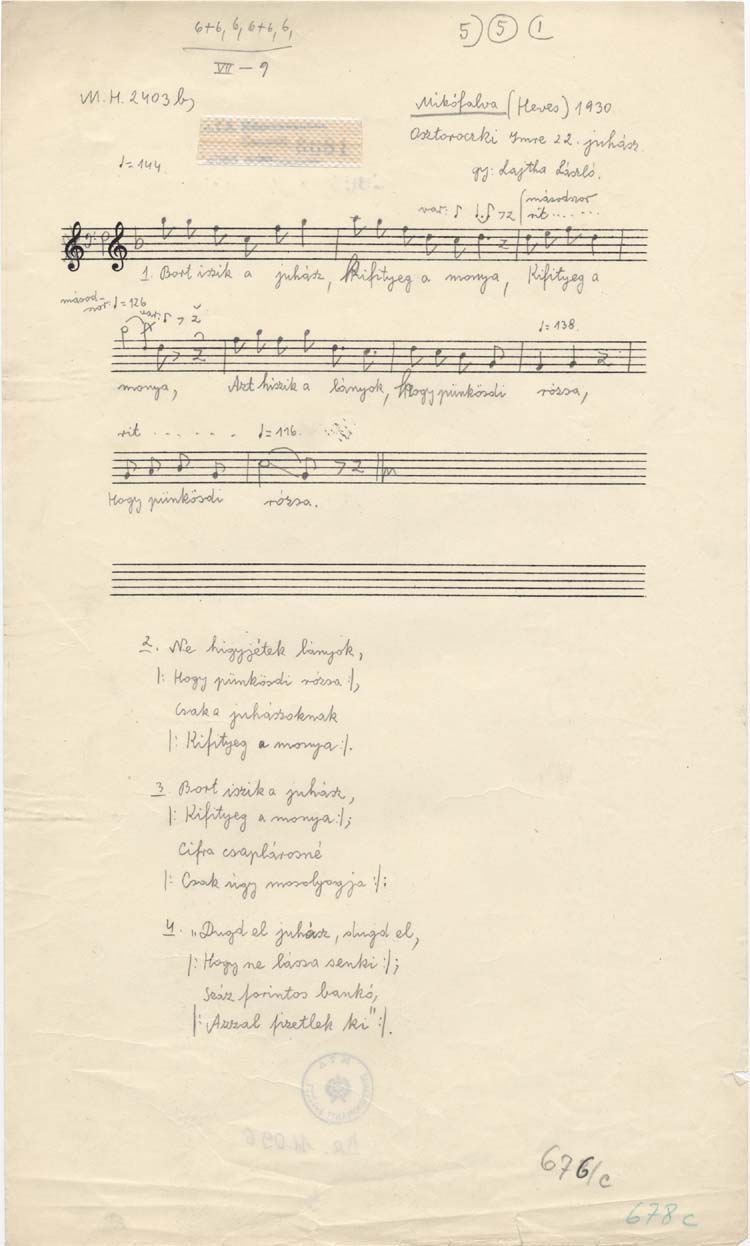 6+6, 6, 6+6, 6,
VII – 9
5) 5 1
M.H. 2403 b,
Mikófalva (Heves) 1930.
Osztoroczki Imre 22. juhász.
gy: Lajtha László.
♩= 144
var:
másodszor
rit......
1. Bort iszik a juhász, Kifityeg a monya, Kifityeg a
másod-
szor: ♩= 126
var:
♩= 138.
monya, Azt hiszik a lányok, Hogy pünkösdi rózsa,
rit . . . . . . ♩= 116.
Hogy pünkösdi rózsa.
2. Ne higyjétek lányok,
|: Hogy pünkösdi rózsa :|,
Csak a juhászoknak
|: Kifityeg a monya :|.
3 Bort iszik a juhász,
|: Kifityeg a monya :|;
Cifra csaplárosné
|: Csak úgy mosolyogja :|;
4. „Dugd el juhász, dugd el,
|: Hogy ne lássa senki :|;
Száz forintos bankó,
|: Azzal fizetlek ki" :|.
676/c
678 c